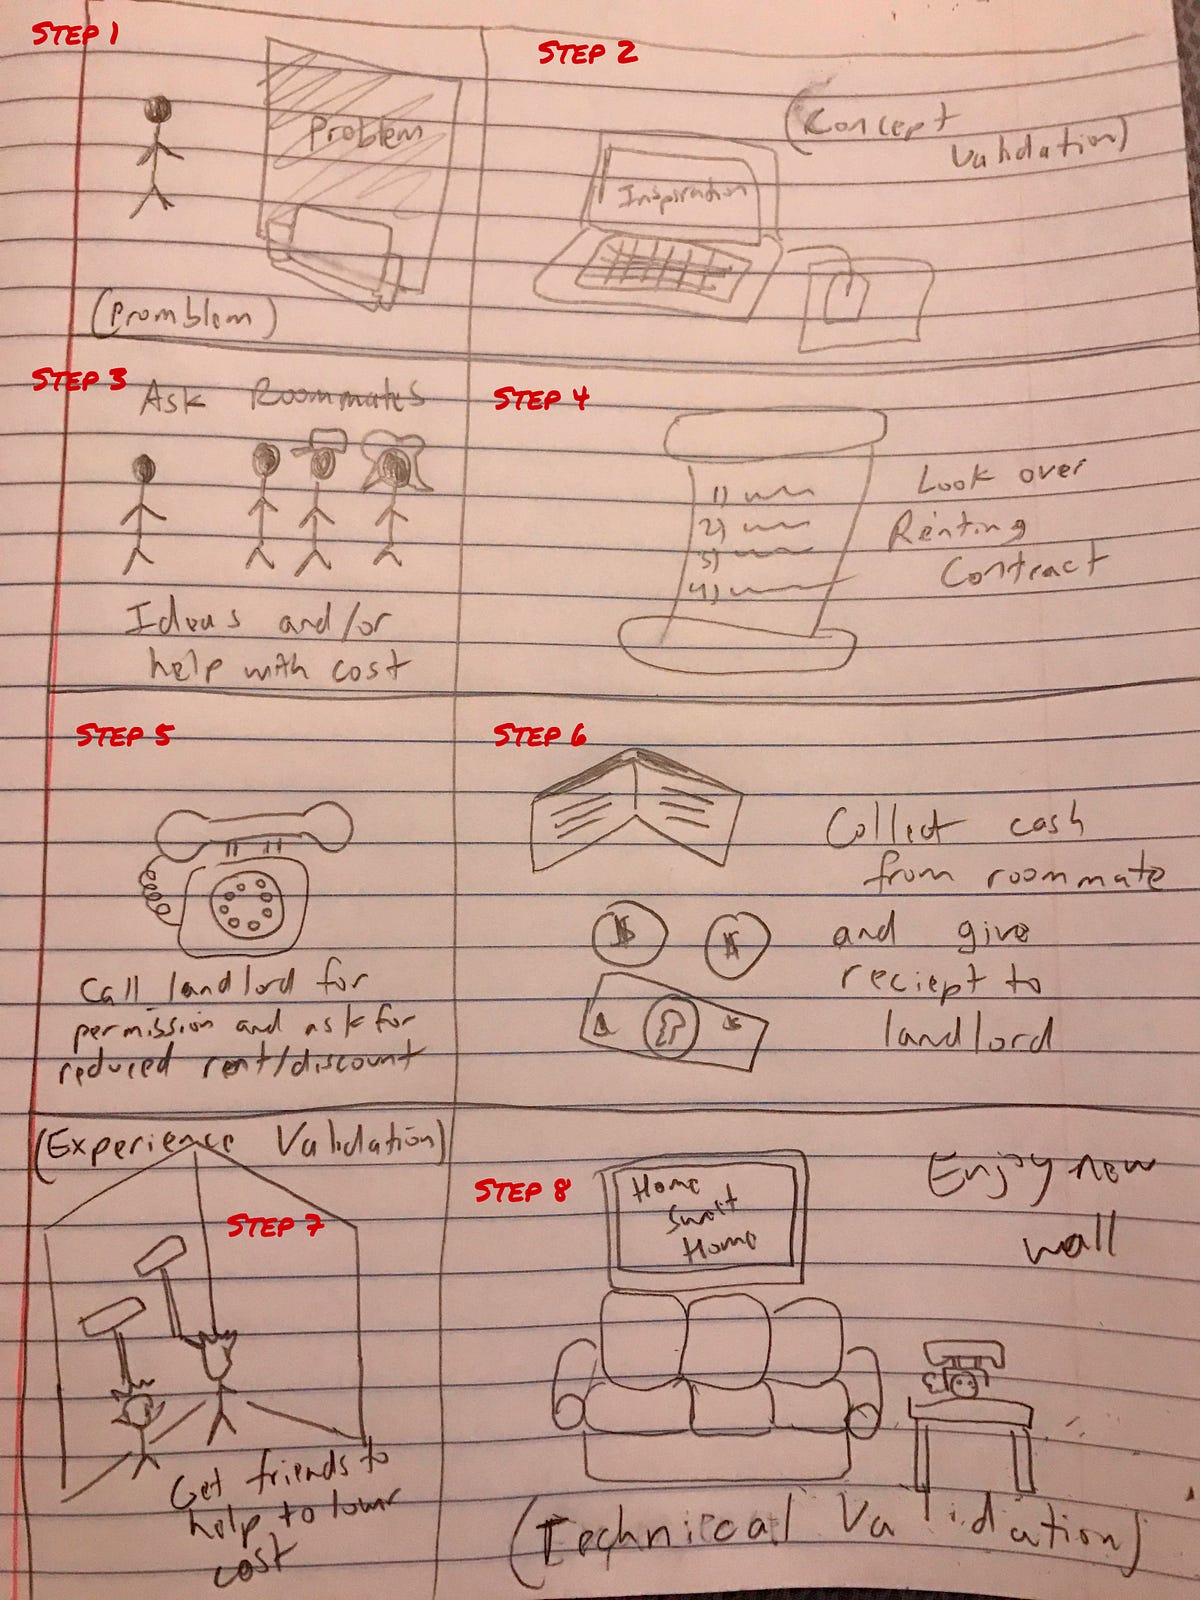 STEP 1
Problem
(Promblem)
STEP 2
(Concept
Validation)
Inspiration
STEP 3
Ask Roommates
Ideas and/or
help with cost
STEP 4
1)
2)
3)
4)
Look over
Renting
Contract
STEP 5
Call landlord for
permission and ask for
reduced rent/discount
STEP 6
Collect cash
from roommate
and give
reciept to
landlord
$ $
(Experience Validation)
STEP 7
Get friends to
help to lower
cost
STEP 8
Home
Sweet
Home
Enjoy new
wall
(Technical Validation)